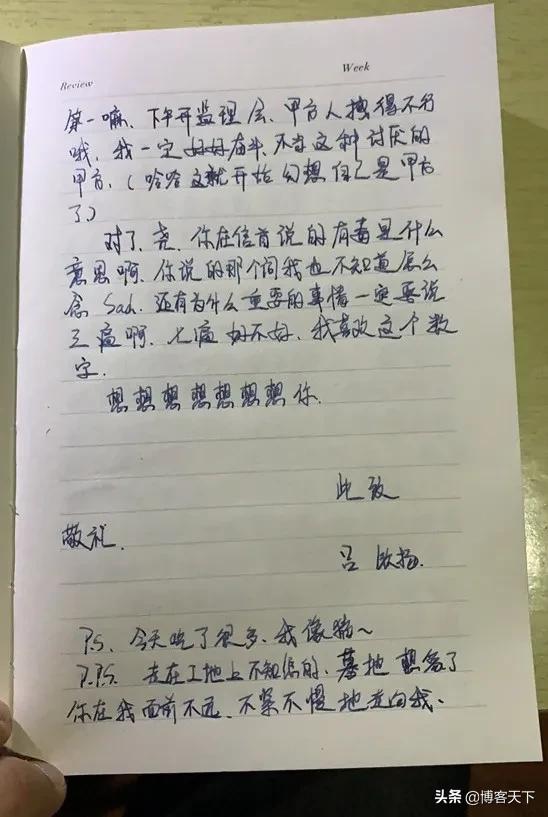 Review Week
第一嘛、下午开监理会、甲方人拽得不行
哦、我一定好好奋斗、不当这种讨厌的
甲方、(哈哈这就开始幻想自己是甲方
了)
对了、尧、你在信首说的有毒是什么
意思啊、你说的那个词我也不知道怎么
念 Sad、还有为什么重要的事情一定要说
三遍啊、七遍好不好、我喜欢这个数
字.
想想想想想想想你.
此致
敬礼.
吕 扬.
P.S. 今天吃了很多、我像猪~
P.P.S. 走在工地上不知怎的、蓦地想象了
你在我面前不远、不紧不慢地走向我.
头条 @博客天下